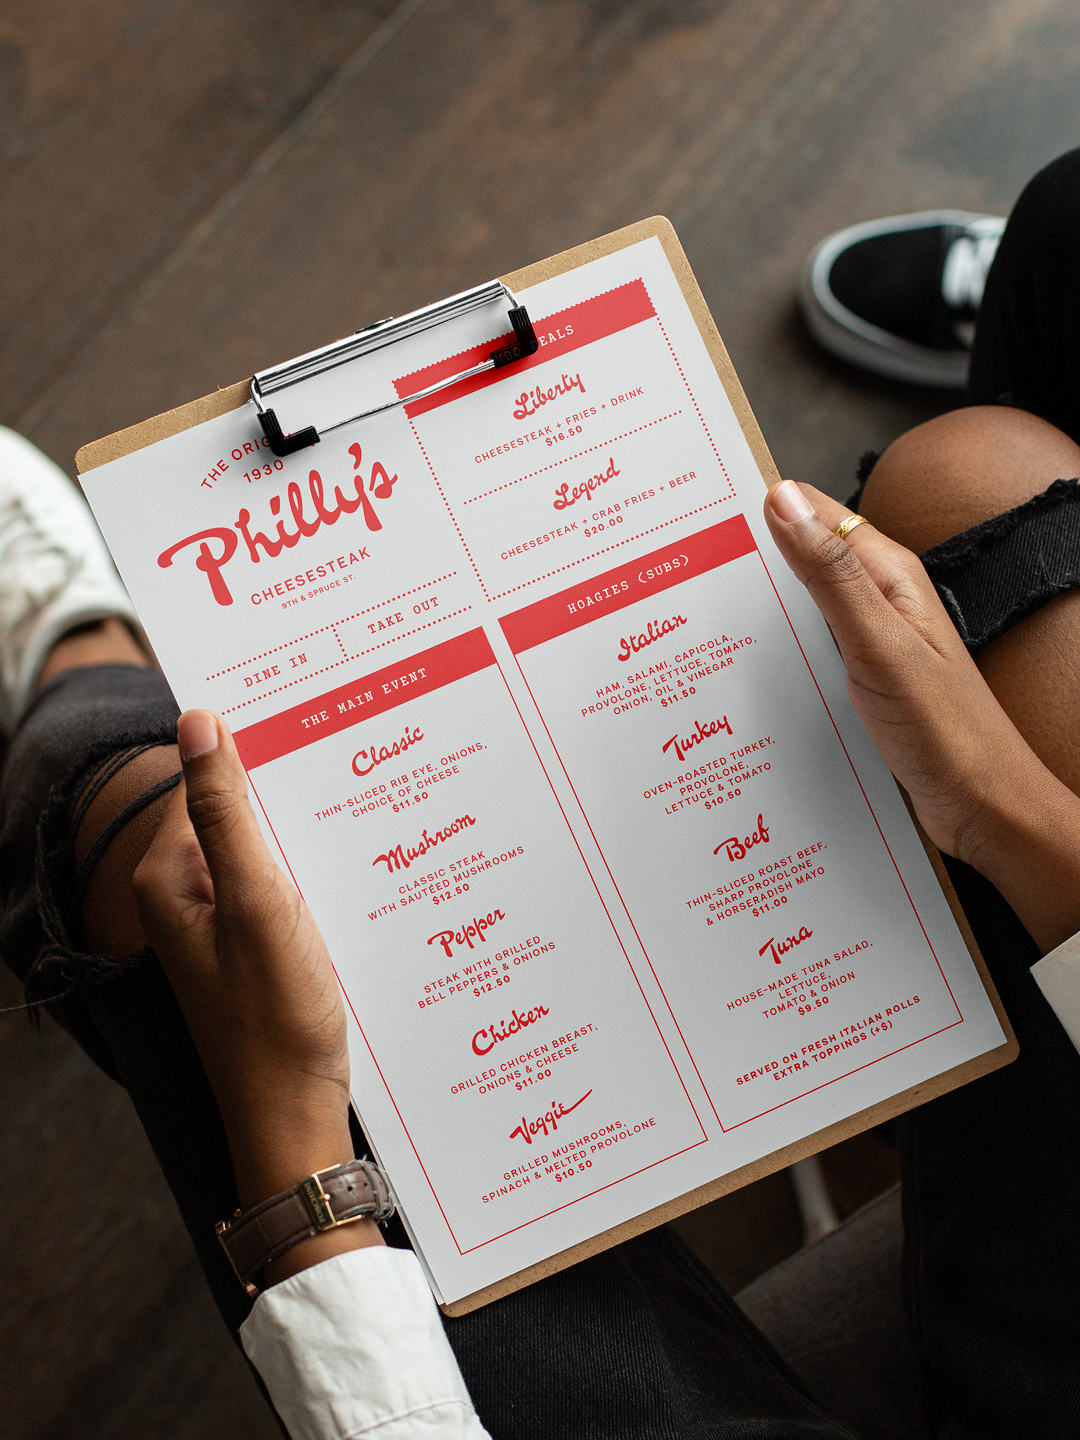 THE ORIG
1930
Philly's
CHEESESTEAK
9TH & SPRUCE ST.
DINE IN
TAKE OUT
DEALS
Liberty
CHEESESTEAK + FRIES + DRINK
$16.50
Legend
CHEESESTEAK + CRAB FRIES + BEER
$20.00
THE MAIN EVENT
Classic
THIN-SLICED RIB EYE, ONIONS,
CHOICE OF CHEESE
$11.50
Mushroom
CLASSIC STEAK
WITH SAUTÉED MUSHROOMS
$12.50
Pepper
STEAK WITH GRILLED
BELL PEPPERS & ONIONS
$12.50
Chicken
GRILLED CHICKEN BREAST,
ONIONS & CHEESE
$11.00
Veggie
GRILLED MUSHROOMS,
SPINACH & MELTED PROVOLONE
$10.50
HOAGIES (SUBS)
Italian
HAM, SALAMI, CAPICOLA,
PROVOLONE, LETTUCE, TOMATO,
ONION, OIL & VINEGAR
$11.50
Turkey
OVEN-ROASTED TURKEY,
PROVOLONE,
LETTUCE & TOMATO
$10.50
Beef
THIN-SLICED ROAST BEEF,
SHARP PROVOLONE
& HORSERADISH MAYO
$11.00
Tuna
HOUSE-MADE TUNA SALAD,
LETTUCE,
TOMATO & ONION
$9.50
SERVED ON FRESH ITALIAN ROLLS
EXTRA TOPPINGS (+$)